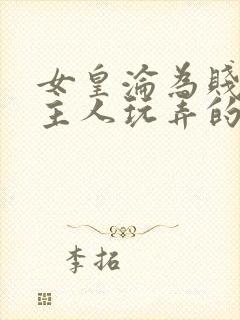 女皇淪為賤
主人玩弄的
李拓